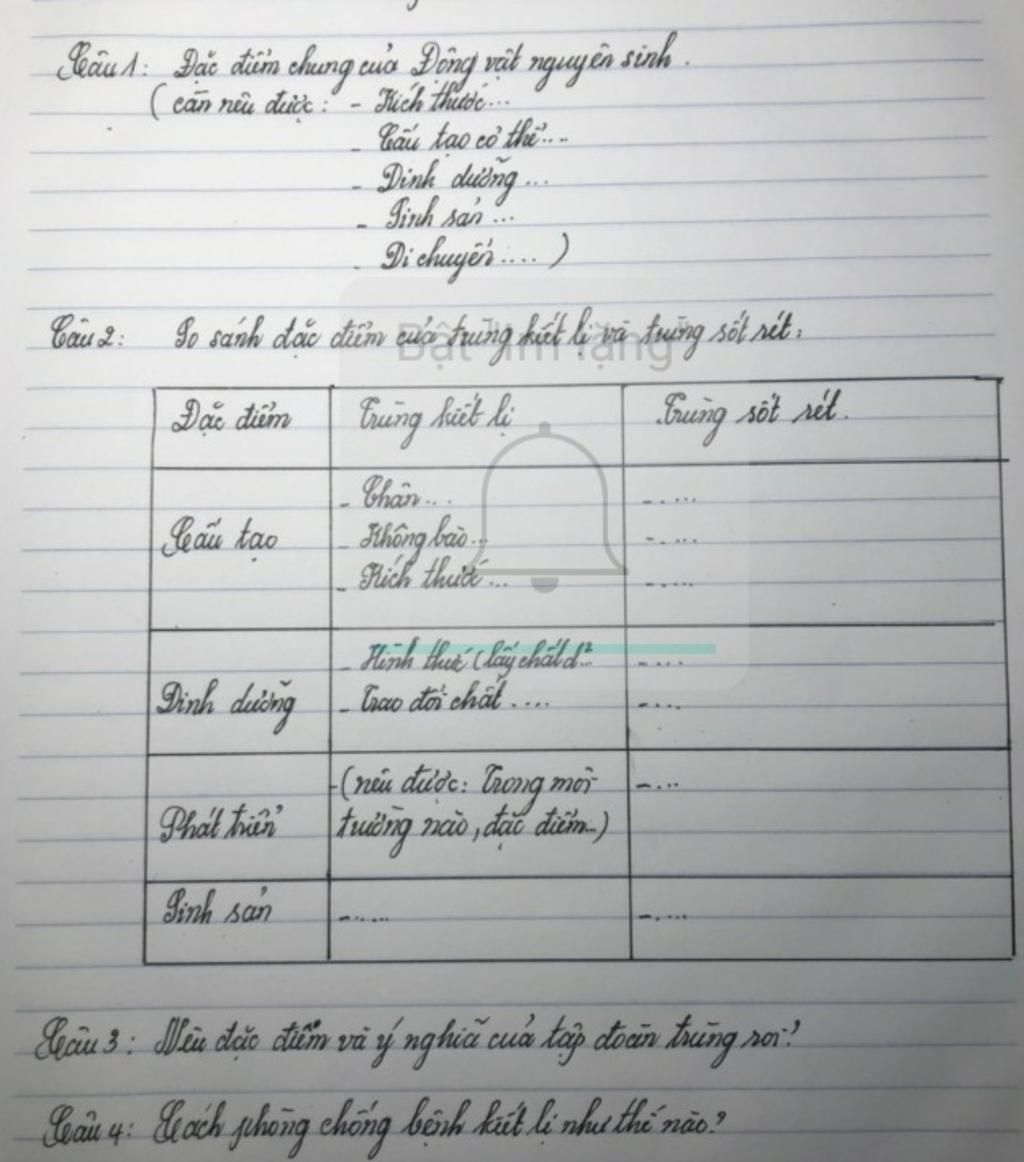 Câu 1: Đặc điểm chung của Động vật nguyên sinh.
(cần nêu được: - Kích thước...
- Cấu tạo cơ thể...
- Dinh dưỡng...
- Sinh sản...
- Di chuyển....)
Câu 2: So sánh đặc điểm của trùng kiết lị và trùng sốt rét:
Bật "Im lặng"
Đặc điểm Trùng kiết lị Trùng sốt rét.
Cấu tạo
- Chân... -....
- Không bào... -....
- Kích thước... -....
Dinh dưỡng
- Hình thức (lấy chất d²... -....
- Trao đổi chất.... -....
Phát triển
-(nêu được: Trong môi -...
trường nào, đặc điểm...)
Sinh sản -..... -....
Câu 3: Nêu đặc điểm và ý nghĩa của tập đoàn trùng roi?
Câu 4: Cách phòng chống bệnh kiết lị như thế nào?